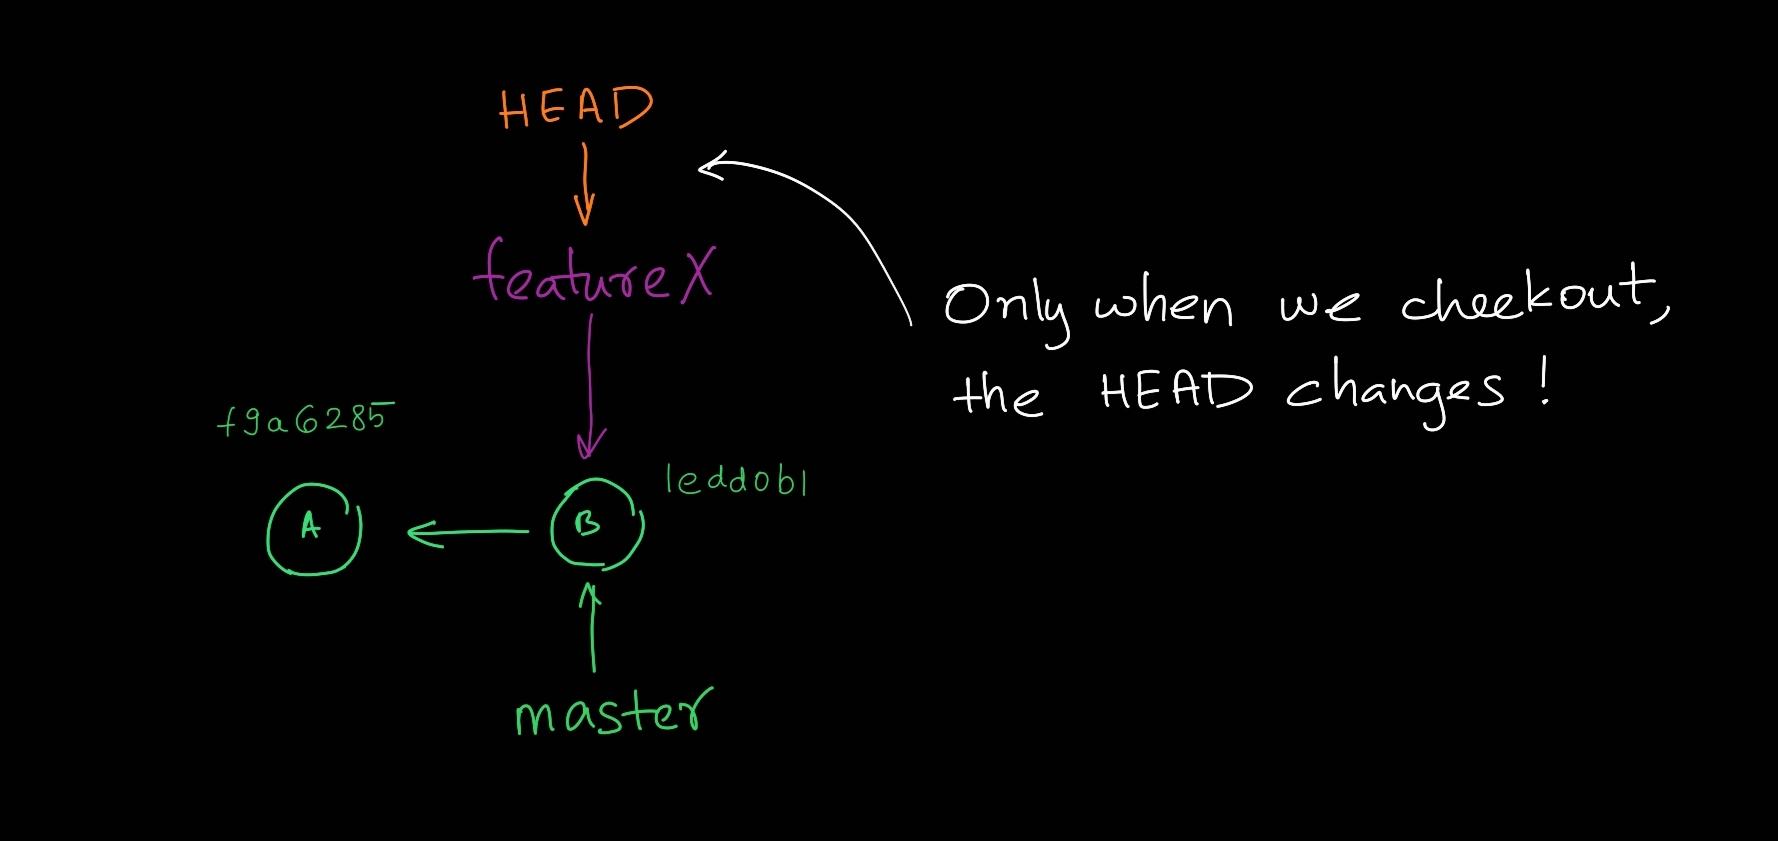 HEAD
featureX
Only when we checkout,
the HEAD changes!
f9a6285
1edd0b1
A
B
master